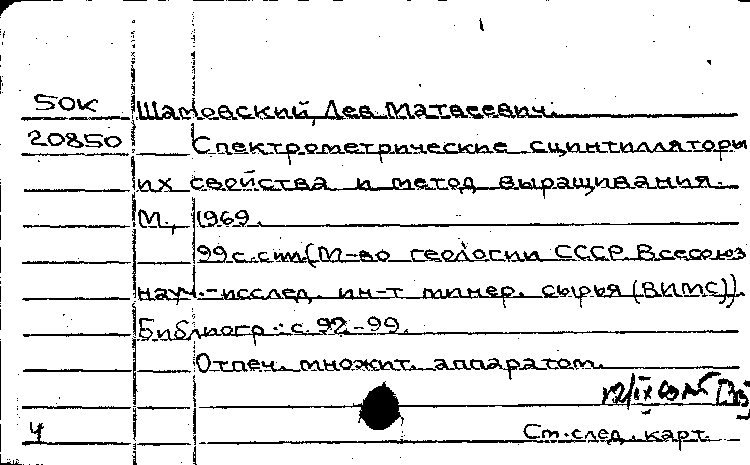 50К Шамовский, Лев Матвеевич.
20850 Спектрометрические сцинтилляторы
их свойства и метод выращивания.
М., 1969.
99 с. с ил. (М-во геологии СССР. Всесоюз
науч.-исслед. ин-т минер. сырья (ВИМС)).
Библиогр.: с. 92-99.
Отпеч. множит. аппаратом.
4 См. след. карт.